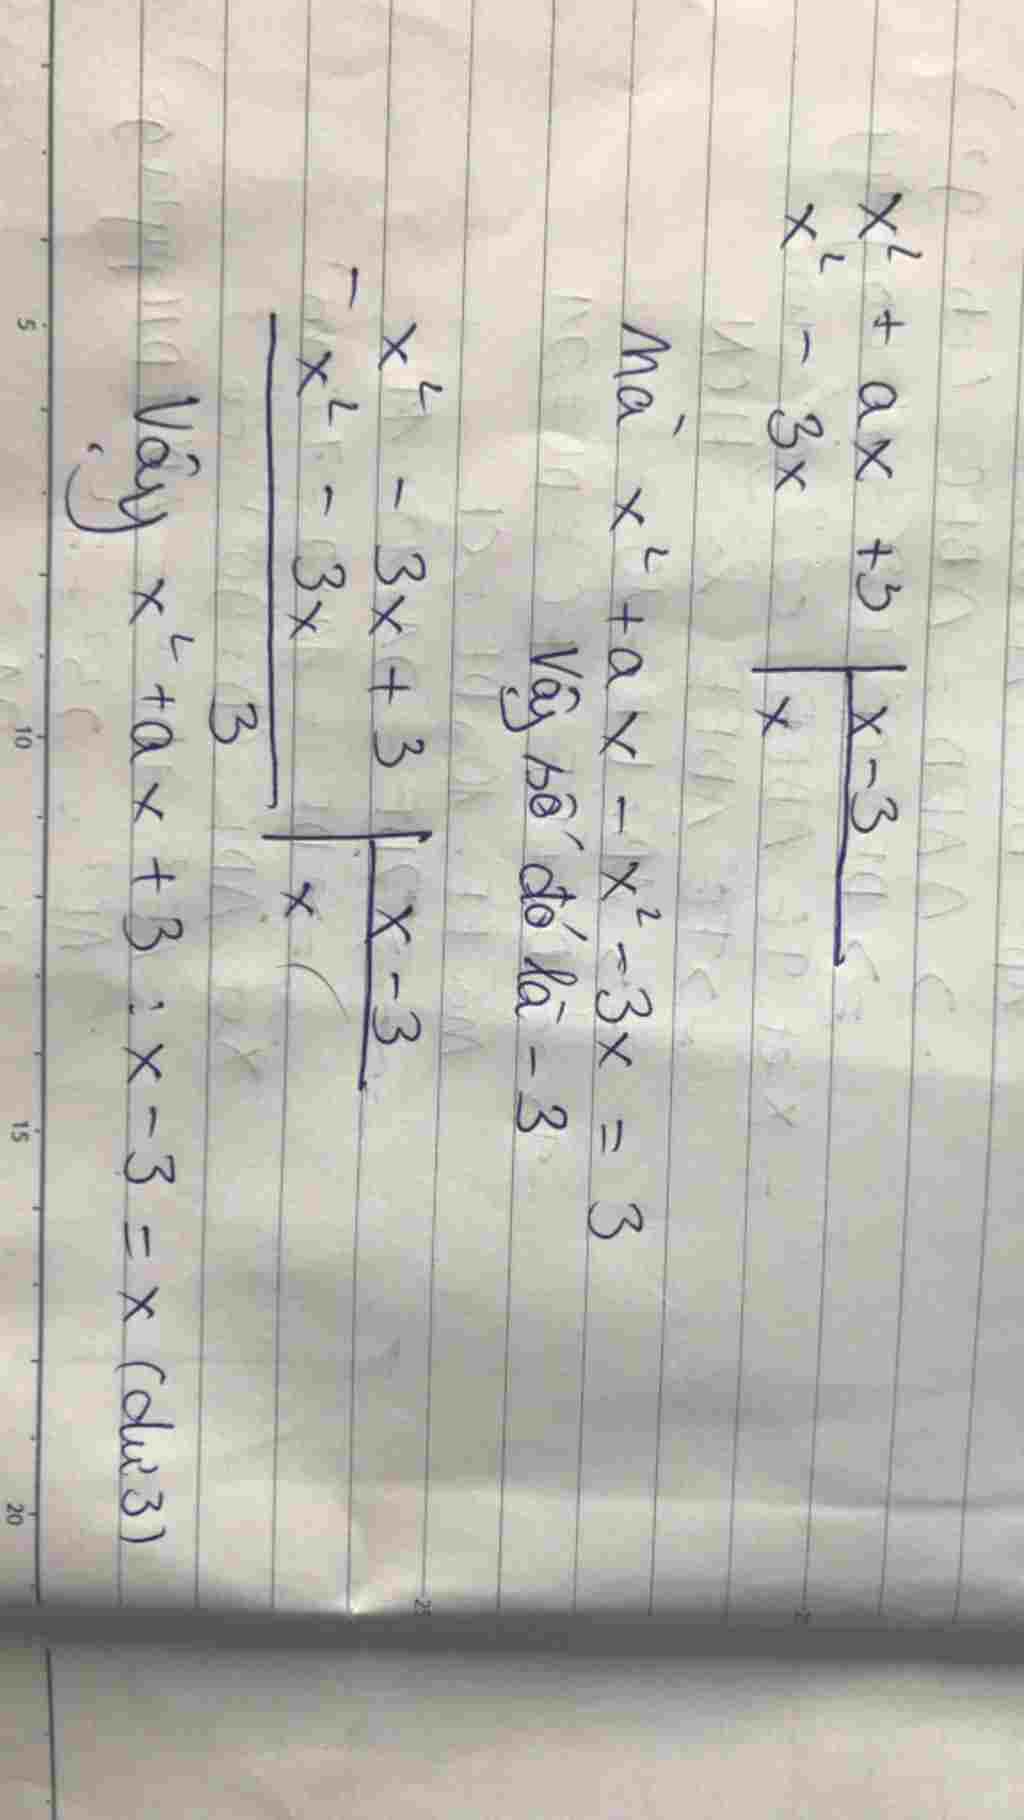 x² + ax + 3 | x - 3
x² - 3x | x
Mà x² + ax - x² - 3x = 3
Vậy số đó là -3
x² - 3x + 3 | x - 3
- x² - 3x | x
3
Vậy x² + ax + 3 : x - 3 = x (dư 3)
5 10 15 20